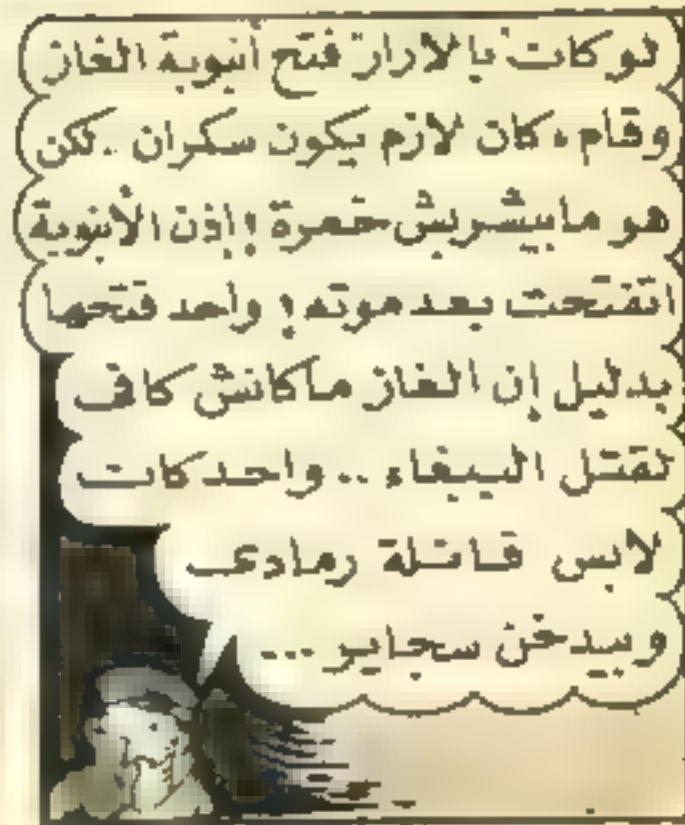 لو كان "بالارار" فتح أنبوبة الغاز
وقام، كان لازم يكون سكران .. لكن
هو مابيشربش خمرة! إذن الأنبوبة
اتفتحت بعد موته! واحد فتحها
بدليل إن الغاز ماكانش كاف
لقتل الببغاء .. واحد كان
لابس فانلة رمادى
وبيدخن سجاير ...